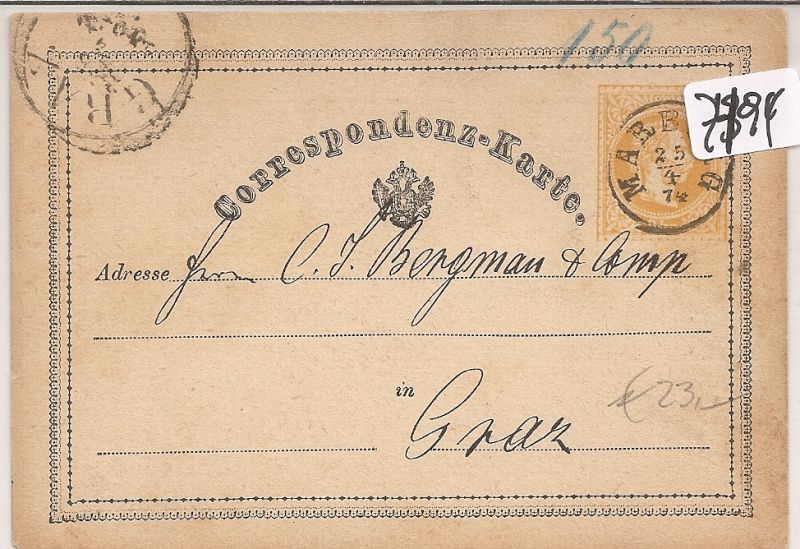 150
7894
Correspondenz-Karte.
MARBURG
25
4
74
Adresse Herrn C. J. Bergman & Comp
in
Graz
€ 23,-